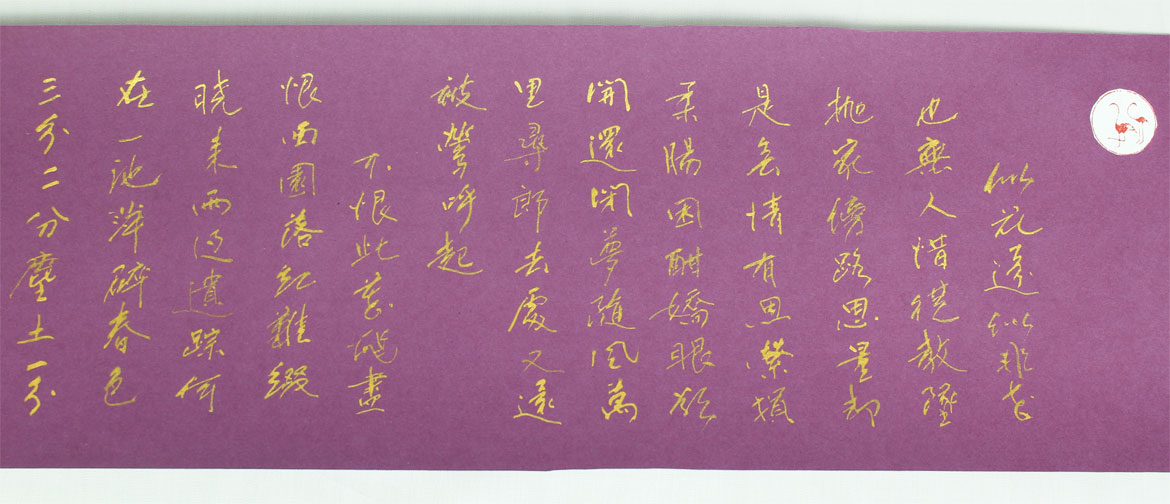 似花還似非花
也無人惜從教墜
抛家傍路思量却
是無情有思縈損
柔腸困酣嬌眼欲
開還閉夢隨風萬
里尋郎去處又還
被鶯呼起
不恨此花飛盡
恨西園落紅難綴
曉来雨過遺踪何
在一池萍碎春色
三分二分塵土一分